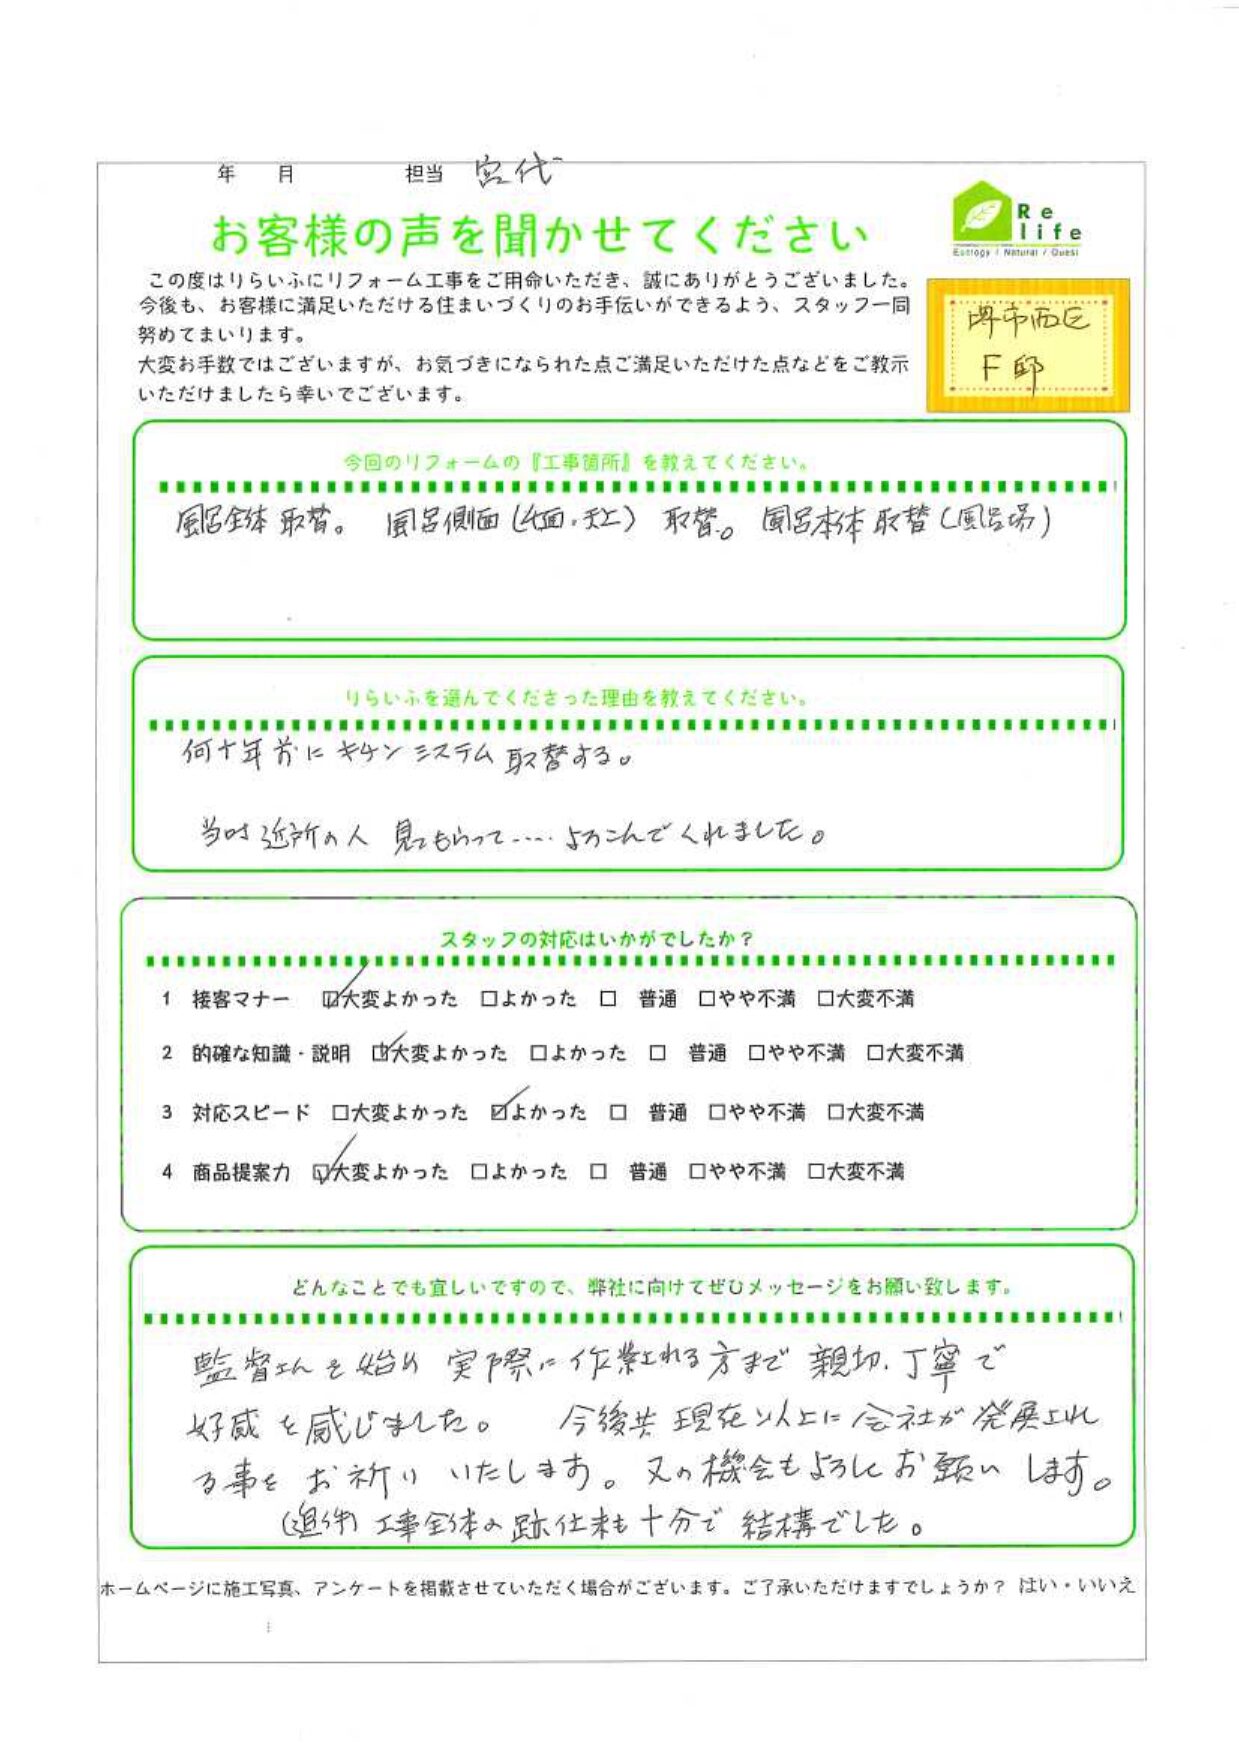 年 月 担当 宮代
お客様の声を聞かせてください
Re
life
Ecology / Natural / Quest
この度はりらいふにリフォーム工事をご用命いただき、誠にありがとうございました。
今後も、お客様に満足いただける住まいづくりのお手伝いができるよう、スタッフ一同
努めてまいります。
大変お手数ではございますが、お気づきになられた点ご満足いただけた点などをご教示
いただけましたら幸いでございます。
堺市西区
F邸
今回のリフォームの『工事箇所』を教えてください。
風呂全体 取替。 風呂側面(4面・天上) 取替。 風呂本体取替(風呂場)
りらいふを選んでくださった理由を教えてください。
何十年前に キチン システム 取替する。
当時 近所の人 見てもらって····· よろこんでくれました。
スタッフの対応はいかがでしたか？
1 接客マナー ☑大変よかった □よかった □ 普通 □やや不満 □大変不満
2 的確な知識・説明 ☑大変よかった □よかった □ 普通 □やや不満 □大変不満
3 対応スピード □大変よかった ☑よかった □ 普通 □やや不満 □大変不満
4 商品提案力 ☑大変よかった □よかった □ 普通 □やや不満 □大変不満
どんなことでも宜しいですので、弊社に向けてぜひメッセージをお願い致します。
監督さんを始め 実際に作業される方まで 親切、丁寧で
好感を感じました。 今後共 現在以上に会社が発展され
る事を お祈り いたします。又の機会もよろしくお願い します。
(追伸) 工事全体の跡仕末も十分で 結構でした。
ホームページに施工写真、アンケートを掲載させていただく場合がございます。ご了承いただけますでしょうか？ はい・いいえ